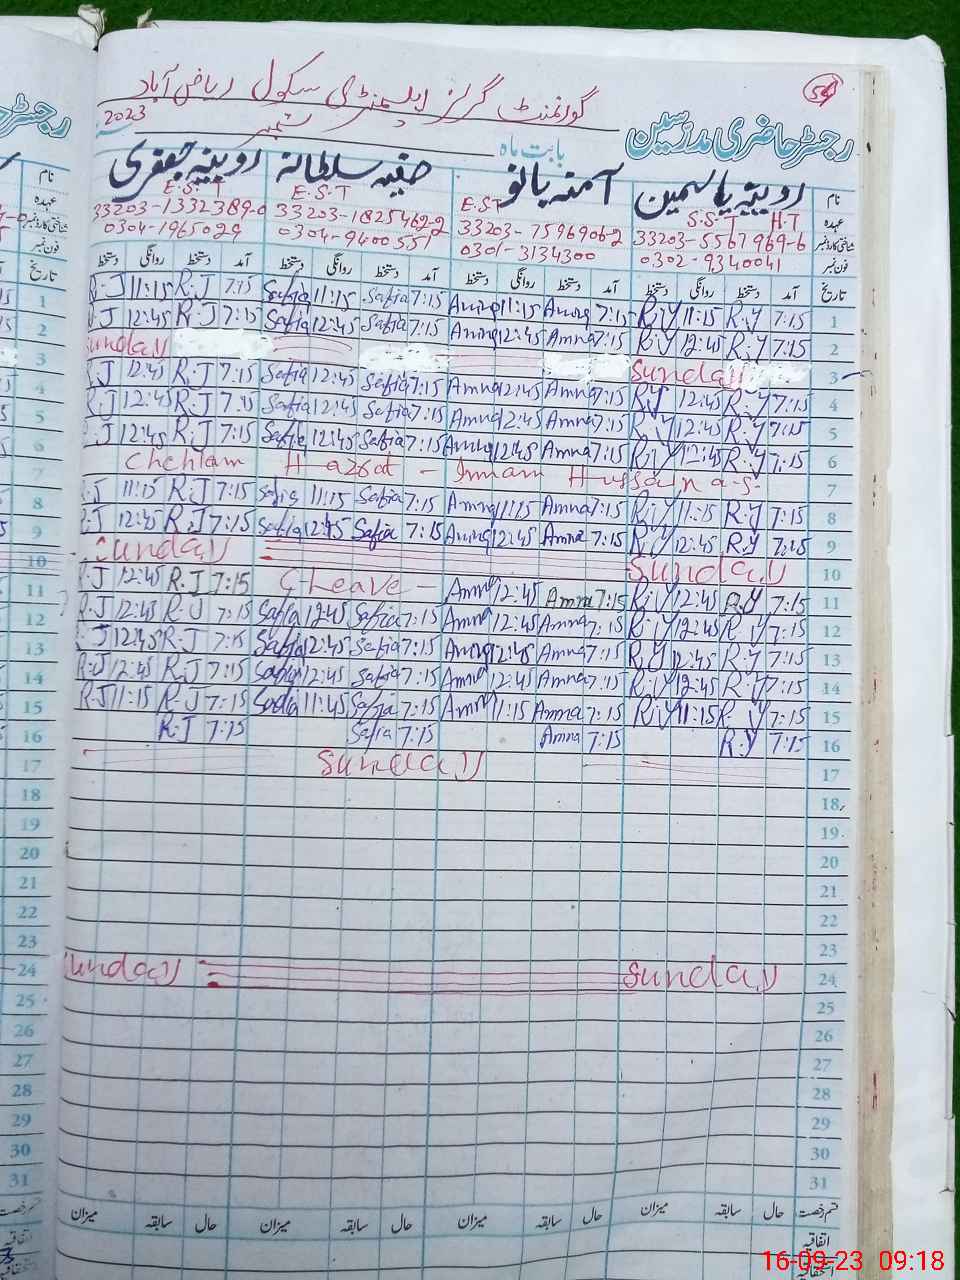 54
گورنمنٹ گرلز ایلیمنٹری سکول ریاض آباد
رجسٹر حاضری مدرسین بابت ماہ ستمبر 2023
نام روبینہ یاسمین آمنہ بانو صفیہ سلطانہ روبینہ جعفری
عہدہ S.S.T H.T E.ST E.S.T E.S.T
شناختی کارڈ نمبر 33203-5567969-6 33203-7596906-2 33203-1825462-2 33203-1332389-0
فون نمبر 0302-9340041 0301-3134300 0304-9400551 0304-1965029
تاریخ آمد دستخط روانگی دستخط آمد دستخط روانگی دستخط آمد دستخط روانگی دستخط آمد دستخط روانگی دستخط
1 7:15 R.Y 11:15 R.Y 7:15 Amna 11:15 Amna 7:15 Safia 11:15 Safia 7:15 R.J 11:15 R.J
2 7:15 R.Y 12:45 R.Y 7:15 Amna 12:45 Amna 7:15 Safia 12:45 Safia 7:15 R.J 12:45 R.J
3 Sunday Sunday
4 7:15 R.Y 12:45 R.Y 7:15 Amna 12:45 Amna 7:15 Safia 12:45 Safia 7:15 R.J 12:45 R.J
5 7:15 R.Y 12:45 R.Y 7:15 Amna 12:45 Amna 7:15 Safia 12:45 Safia 7:15 R.J 12:45 R.J
6 7:15 R.Y 12:45 R.Y 7:15 Amna 12:45 Amna 7:15 Safia 12:45 Safia 7:15 R.J 12:45 R.J
7 Chehlam Hazrat - Imam Hussain a.s
8 7:15 R.Y 11:15 R.Y 7:15 Amna 11:15 Amna 7:15 Safia 11:15 Safia 7:15 R.J 11:15 R.J
9 7:15 R.Y 12:45 R.Y 7:15 Amna 12:45 Amna 7:15 Safia 12:45 Safia 7:15 R.J 12:45 R.J
10 Sunday Sunday
11 7:15 R.Y 12:45 R.Y 7:15 Amna 12:45 Amna CLeave - 7:15 R.J 12:45 R.J
12 7:15 R.Y 12:45 R.Y 7:15 Amna 12:45 Amna 7:15 Safia 12:45 Safia 7:15 R.J 12:45 R.J
13 7:15 R.Y 12:45 R.Y 7:15 Amna 12:45 Amna 7:15 Safia 12:45 Safia 7:15 R.J 12:45 R.J
14 7:15 R.Y 12:45 R.Y 7:15 Amna 12:45 Amna 7:15 Safia 12:45 Safia 7:15 R.J 12:45 R.J
15 7:15 R.Y 11:15 R.Y 7:15 Amna 11:15 Amna 7:15 Safia 11:45 Safia 7:15 R.J 11:15 R.J
16 7:15 R.Y 7:15 Amna 7:15 Safia 7:15 R.J
17 Sunday
18
19
20
21
22
23
24 Sunday Sunday
25
26
27
28
29
30
31
قسم رخصت حال سابقہ میزان حال سابقہ میزان حال سابقہ میزان حال سابقہ میزان
اتفاقیہ
استحقاقیہ
16-09-23 09:18